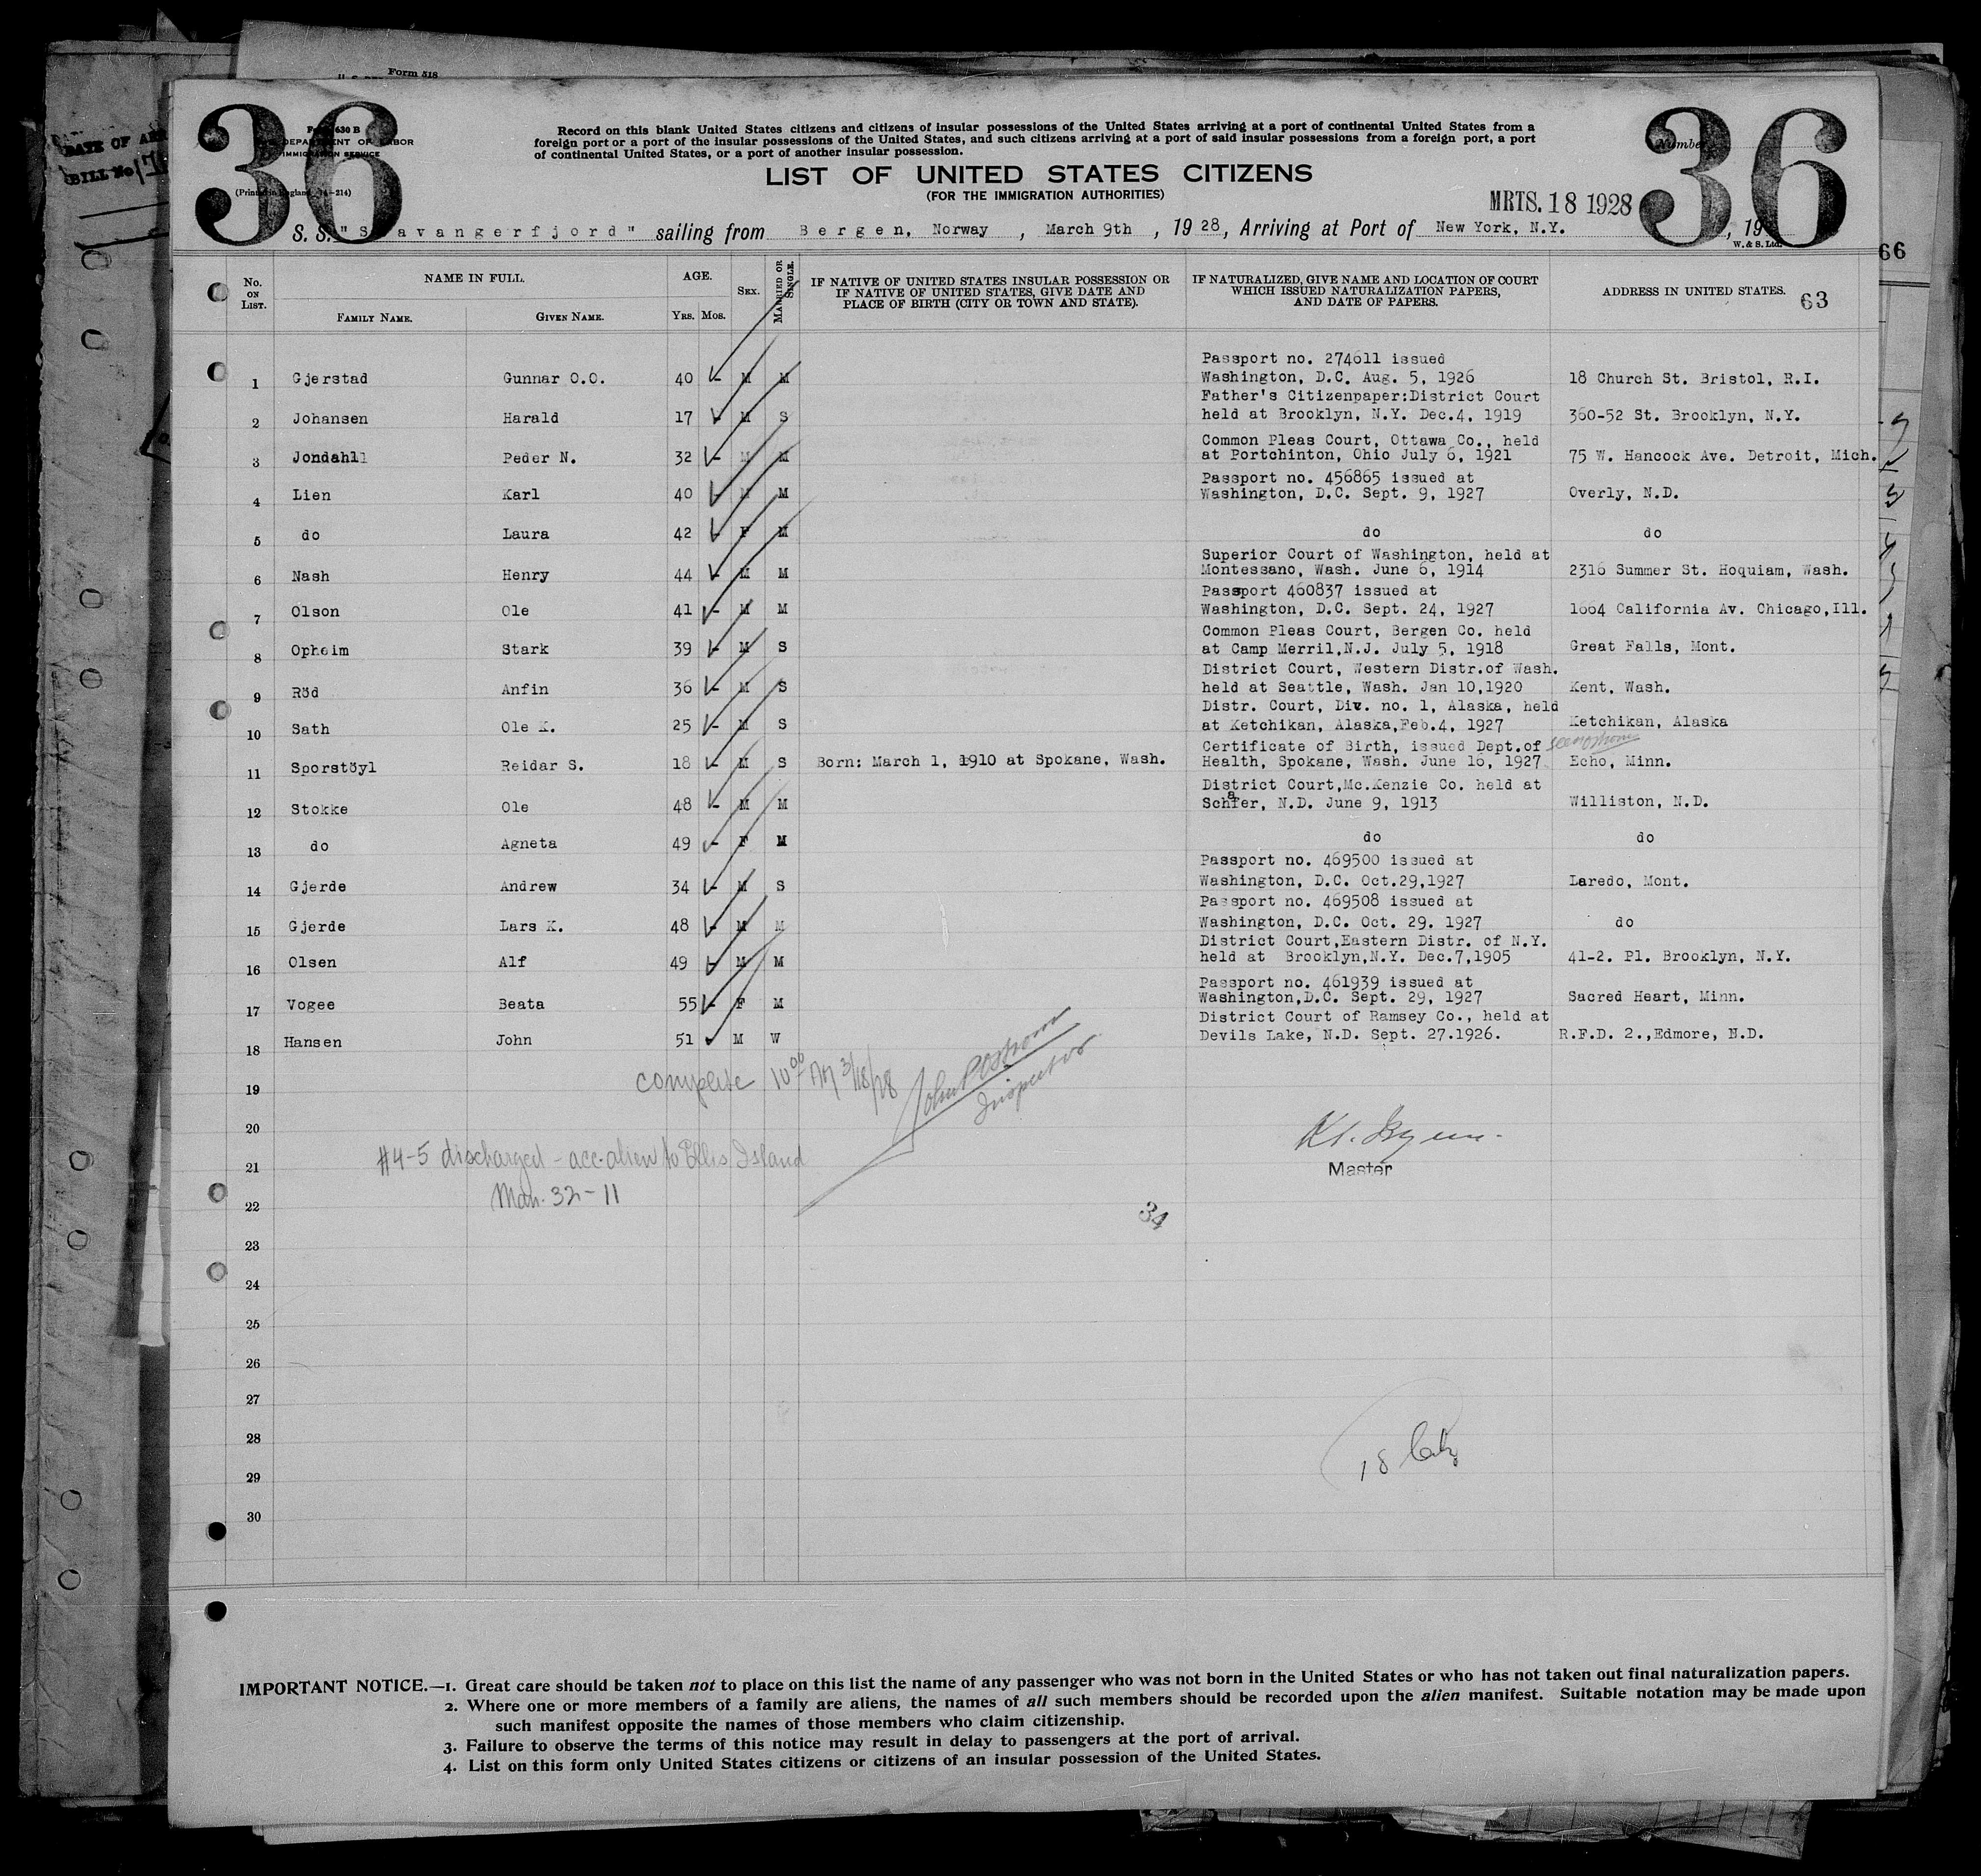 Form 518
DATE OF ARR
BILL No
36
36
Form 630 B
DEPARTMENT OF LABOR
IMMIGRATION SERVICE
(Printed in England 14-214)
Record on this blank United States citizens and citizens of insular possessions of the United States arriving at a port of continental United States from a
foreign port or a port of the insular possessions of the United States, and such citizens arriving at a port of said insular possessions from a foreign port, a port
of continental United States, or a port of another insular possession.
Number
LIST OF UNITED STATES CITIZENS
(FOR THE IMMIGRATION AUTHORITIES)
MRTS. 18 1928
S. S. "Stavangerfjord" sailing from Bergen, Norway, March 9th, 1928, Arriving at Port of New York, N.Y., 19
W. & S. Ltd.
66
No. ON LIST.
NAME IN FULL.
FAMILY NAME.
GIVEN NAME.
AGE.
YRS. MOS.
SEX.
MARRIED OR SINGLE.
IF NATIVE OF UNITED STATES INSULAR POSSESSION OR
IF NATIVE OF UNITED STATES, GIVE DATE AND
PLACE OF BIRTH (CITY OR TOWN AND STATE).
IF NATURALIZED, GIVE NAME AND LOCATION OF COURT
WHICH ISSUED NATURALIZATION PAPERS,
AND DATE OF PAPERS.
ADDRESS IN UNITED STATES.
63
Passport no. 274611 issued
1 Gjerstad Gunnar O.O. 40 M M Washington, D.C. Aug. 5, 1926 18 Church St. Bristol, R.I.
Father's Citizenpaper:District Court
2 Johansen Harald 17 M S held at Brooklyn, N.Y. Dec.4, 1919 360-52 St. Brooklyn, N.Y.
Common Pleas Court, Ottawa Co., held
3 Jondahll Peder N. 32 M M at Portchinton, Ohio July 6, 1921 75 W. Hancock Ave. Detroit, Mich.
Passport no. 456865 issued at
4 Lien Karl 40 M M Washington, D.C. Sept. 9, 1927 Overly, N.D.
5 do Laura 42 F M do do
Superior Court of Washington, held at
6 Nash Henry 44 M M Montessano, Wash. June 6, 1914 2316 Summer St. Hoquiam, Wash.
Passport 460837 issued at
7 Olson Ole 41 M M Washington, D.C. Sept. 24, 1927 1664 California Av. Chicago,Ill.
Common Pleas Court, Bergen Co. held
8 Opheim Stark 39 M S at Camp Merril,N.J. July 5, 1918 Great Falls, Mont.
District Court, Western Distr.of Wash.
9 Röd Anfin 36 M S held at Seattle, Wash. Jan 10,1920 Kent, Wash.
Distr. Court, Div. no. 1, Alaska, held
10 Sath Ole K. 25 M S at Ketchikan, Alaska,Feb.4, 1927 Ketchikan, Alaska
Certificate of Birth, issued Dept.of
11 Sporstöyl Reidar S. 18 M S Born: March 1, 1910 at Spokane, Wash. Health, Spokane, Wash. June 16, 1927 Echo, Minn.
District Court,Mc.Kenzie Co. held at
12 Stokke Ole 48 M M Schafer, N.D. June 9, 1913 Williston, N.D.
13 do Agneta 49 F M do do
Passport no. 469500 issued at
14 Gjerde Andrew 34 M S Washington, D.C. Oct.29,1927 Laredo, Mont.
Passport no. 469508 issued at
15 Gjerde Lars K. 48 M M Washington, D.C. Oct. 29. 1927 do
District Court,Eastern Distr. of N.Y.
16 Olsen Alf 49 M M held at Brooklyn,N.Y. Dec.7,1905 41-2. Pl. Brooklyn, N.Y.
Passport no. 461939 issued at
17 Vogee Beata 55 F M Washington,D.C. Sept. 29, 1927 Sacred Heart, Minn.
District Court of Ramsey Co., held at
18 Hansen John 51 M W Devils Lake, N.D. Sept. 27.1926. R.F.D. 2.,Edmore, N.D.
complete 10 00 3/18/28
19
Inspector
20
#4-5 discharged - acc. alien to Ellis Island
21
Master
Man. 32-11
22
34
23
24
25
26
27
28
18
29
30
IMPORTANT NOTICE.—1. Great care should be taken not to place on this list the name of any passenger who was not born in the United States or who has not taken out final naturalization papers.
2. Where one or more members of a family are aliens, the names of all such members should be recorded upon the alien manifest. Suitable notation may be made upon
such manifest opposite the names of those members who claim citizenship.
3. Failure to observe the terms of this notice may result in delay to passengers at the port of arrival.
4. List on this form only United States citizens or citizens of an insular possession of the United States.